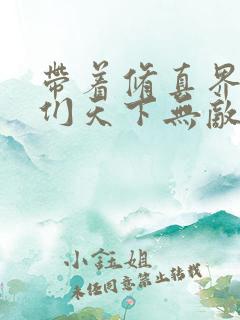 帶着修真界
们天下無敵
小鈺姐
未经同意禁止转载